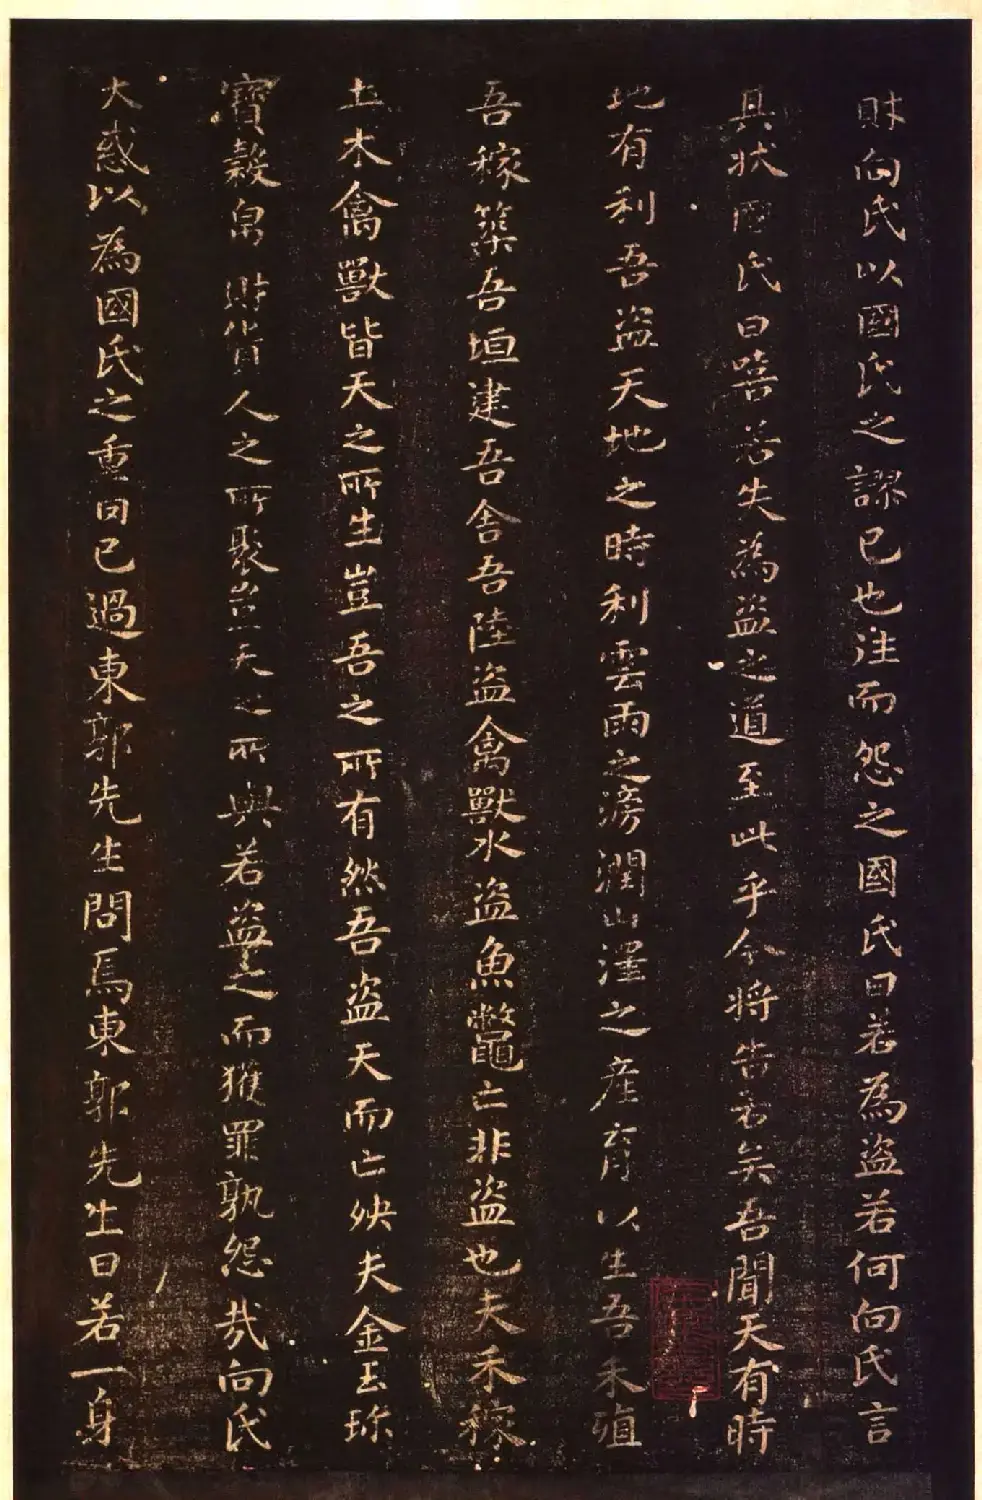 財向氏以國氏之謬已也往而怨之國氏曰若為盜若何向氏言
其狀國氏曰嘻若失為盜之道至此乎今將告若矣吾聞天有時
地有利吾盜天地之時利雲雨之滂潤山澤之產育以生吾禾殖
吾稼築吾垣建吾舍吾陸盜禽獸水盜魚鼈亡非盜也夫禾稼
土木禽獸皆天之所生豈吾之所有然吾盜天而亡殃夫金玉珎
寶穀帛財貨人之所聚豈天之所與若盜之而獲罪孰怨哉向氏
大惑以為國氏之重罔已過東郭先生問焉東郭先生曰若一身